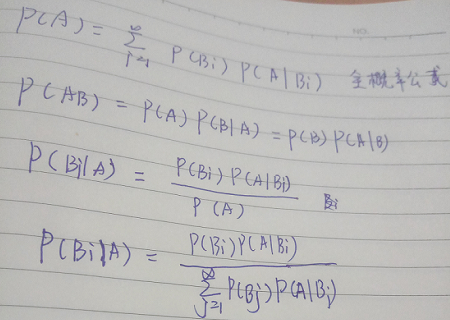 P(A) = ∞∑i=1 P(Bi) P(A|Bi) 全概率公式
P(AB) = P(A) P(B|A) = P(B) P(A|B)
P(Bi|A) = P(Bi) P(A|Bi) / P(A)
P(Bi|A) = P(Bi) P(A|Bi) / ∞∑j=1 P(Bj) P(A|Bj)